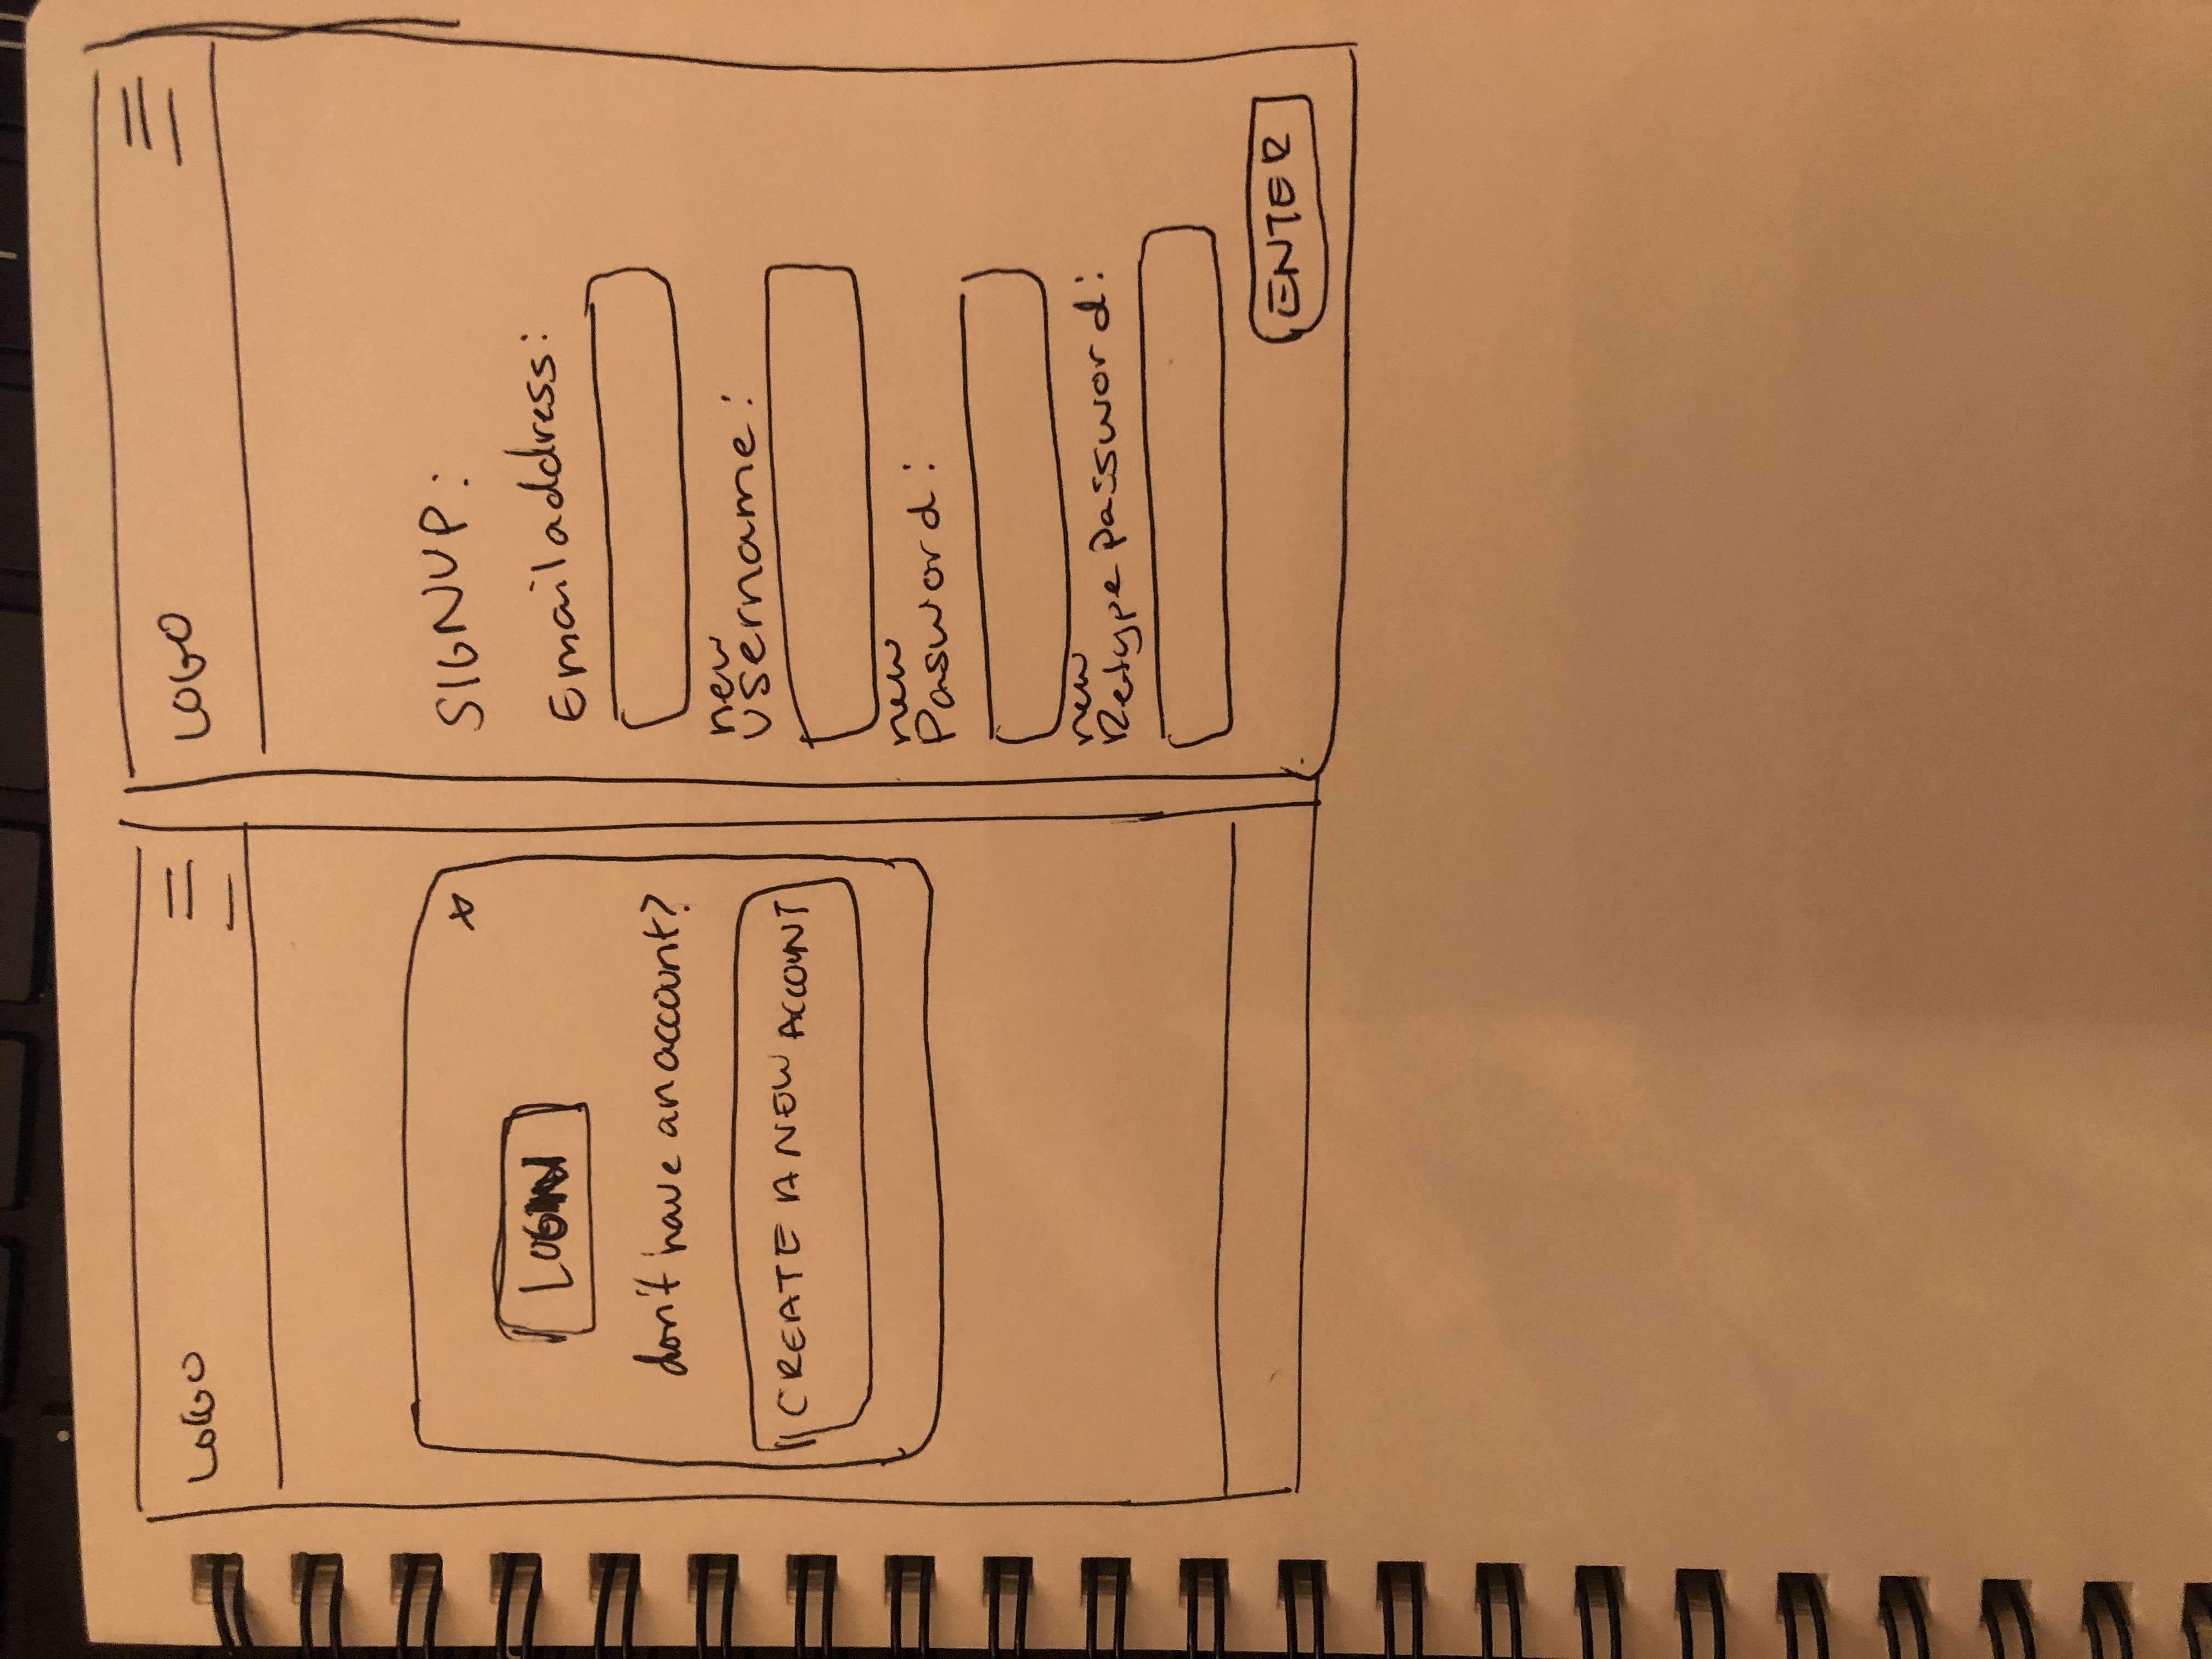 LOGO
x
LOGIN
don't have an account?
CREATE A NEW ACCOUNT
LOGO
SIGNUP:
Email address:
new
username:
new
Pasword:
new
Retype password:
ENTER